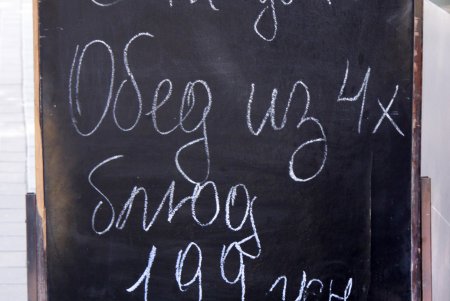 Обед из 4х
блюд
199 грн